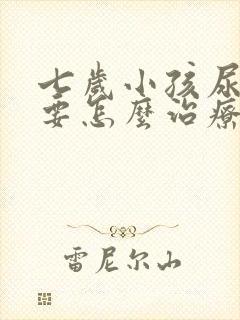 七歲小孩尿
要怎麼治療
雷尼尔山